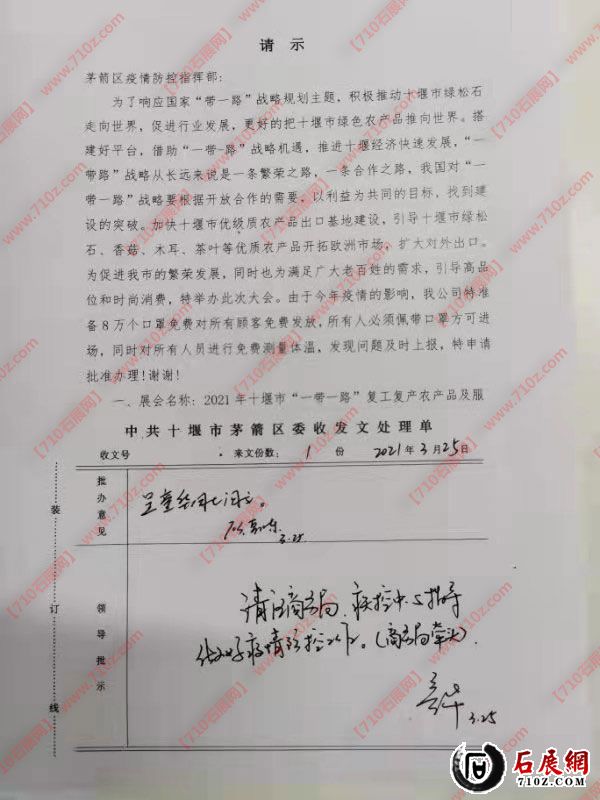 请 示
茅箭区疫情防控指挥部:
为了响应国家“带一路”战略规划主题，积极推动十堰市绿松石
走向世界，促进行业发展，更好的把十堰市绿色农产品推向世界。搭
建好平台，借助“一带-路”战略机遇，推进十堰经济快速发展，“一
带路”战略从长远来说是一条繁荣之路，一条合作之路，我国对“一
带一路”战略要根据开放合作的需要，以利益为共同的目标，找到建
设的突破。加快十堰市优级质农产品出口基地建设，引导十堰市绿松
石、香菇、木耳、茶叶等优质农产品开拓欧洲市场，扩大对外出口。
为促进我市的繁荣发展，同时也为满足广大老百姓的需求，引导高品
位和时尚消费，特举办此次大会。由于今年疫情的影响，我公司特准
备8万个口罩免费对所有顾客免费发放，所有人必须佩带口罩方可进
场，同时对所有人员进行免费测量体温，发现问题及时上报，特申请
批准办理!谢谢!
一、展会名称: 2021年十堰市“一带一路”复工复产农产品及服
中共十堰市茅箭区委收发文处理单
收文号 来文份数: 1 份 2021年3月25日
批办意见
呈童华同志阅示。
3.25
装 订 线
领导批示
请区商务局、疾控中心指导
做好疫情防控工作。(商务局牵头).
3.25
【710石展网】www.710z.com
石展網
710Z.COM